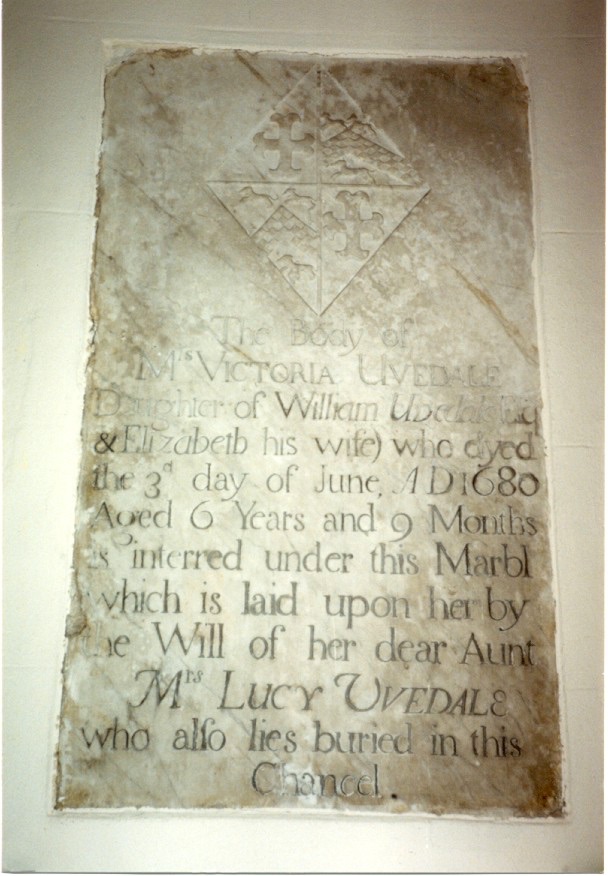 The Body of
Mrs VICTORIA UVEDALE
Daughter of William Uvedale Esq
& Elizabeth his wife) who dyed
the 3d day of June, AD 1680
Aged 6 Years and 9 Months
is interred under this Marbl
which is laid upon her by
the Will of her dear Aunt
Mrs LUCY UVEDALE
who alſo lies buried in this
Chancel.